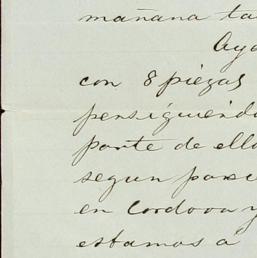 mañana ta
Aye
con 8 piezas
persiguiendo
parte de ello
segun pare
en Cordova y
estamos a